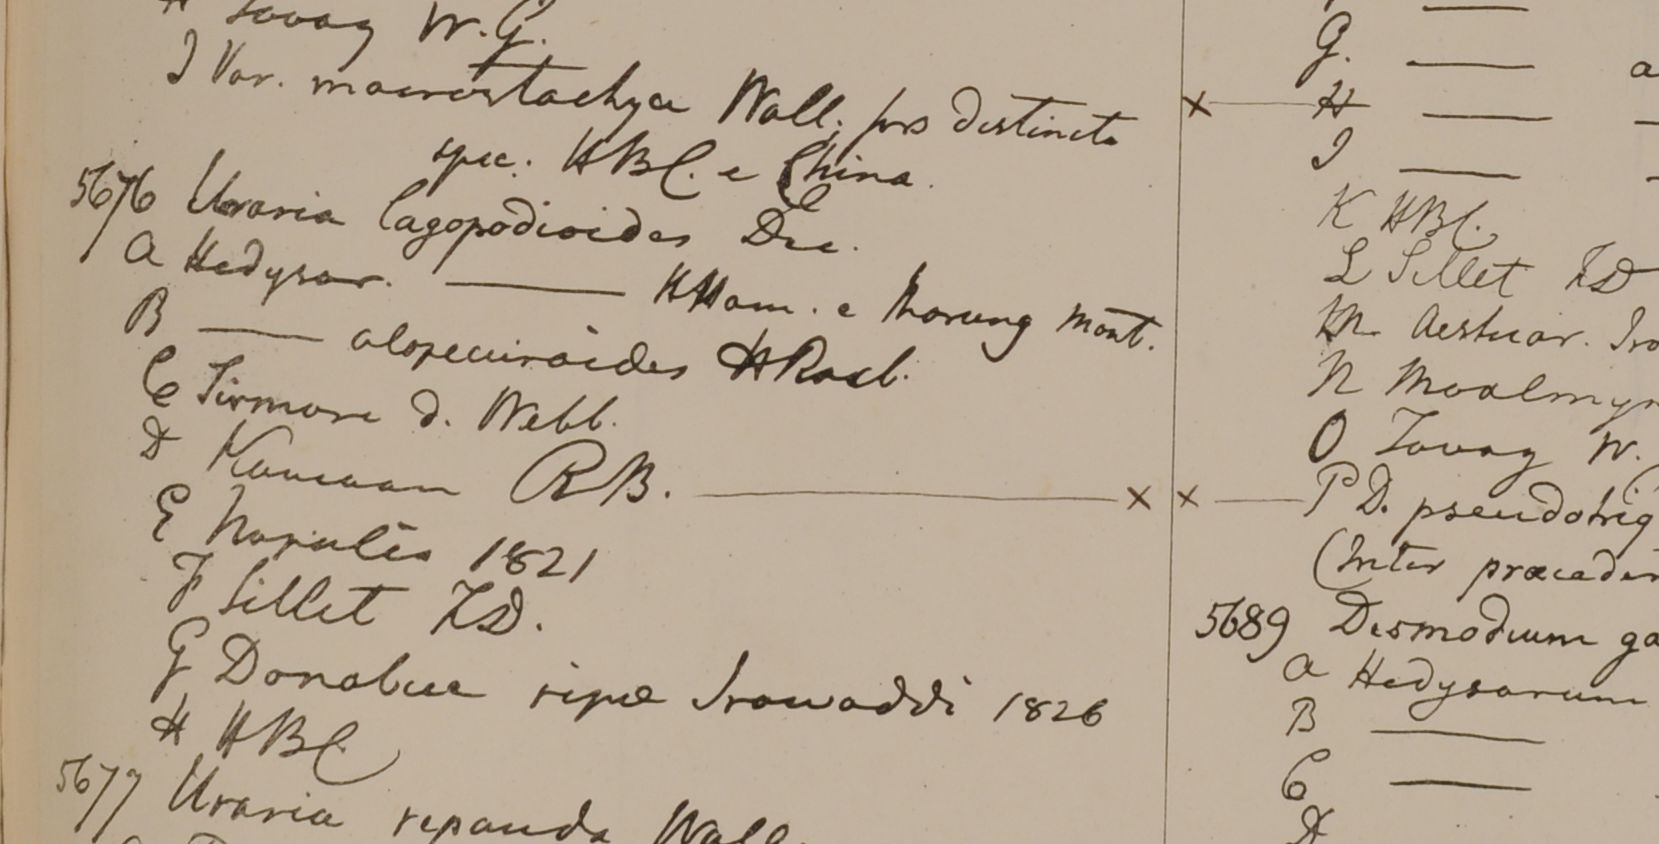 H Tavoy W.G.
I Var. macrostachya Wall. fors distincta
spec. HBC. e China.
5676 Uraria lagopodioides Dec.
A Hedysar. —— HHam. e Morung mont.
B —— alopecuroides HRoxb.
C Sirmore d. Webb.
D Kamaon RB. —— ×
E Napalia 1821
F Sillet FD.
G Donabue ripae Irawaddi 1826
H HBC.
5677 Uraria repanda Wall.
G. —— a
× —— H ——
I ——
K HBC.
L Sillet FD
M Aestuar. Ira
N Moalmyn
O Tavoy W.
× —— P D. pseudotrig
(Inter praeceden
5689 Desmodium ga
A Hedysarum
B ——
C ——
D